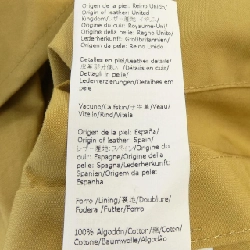 Origen de la piel: Reino Unido/
Origin of leather: United
Kingdom/
Origine du cuir: Royaume-Uni/
Origine della pelle: Regno Unito/
Lederherkunft: Großbritannien/
Origem da pele: Reino Unido
Detalles en piel/Leather details/
Détails en cuir/
Dettagli in pelle/
Lederverzierungen/Detalhes em
pele
Vacuno/Calfskin/牛革/Veau/
Vitello/Rind/Vitela
Origen de la piel: España/
Origin of leather: Spain/
レザー原産地:スペイン/Origine du
cuir: Espagne/Origine della pelle:
Spagna/Lederherkunft:
Spanien/Origem da pele:
Espanha
Forro/Lining/裏地/Doublure/
Fodera/Futter/Forro
100% Algodón/Cotton/綿/Coton/
Cotone/Baumwolle/Algodão